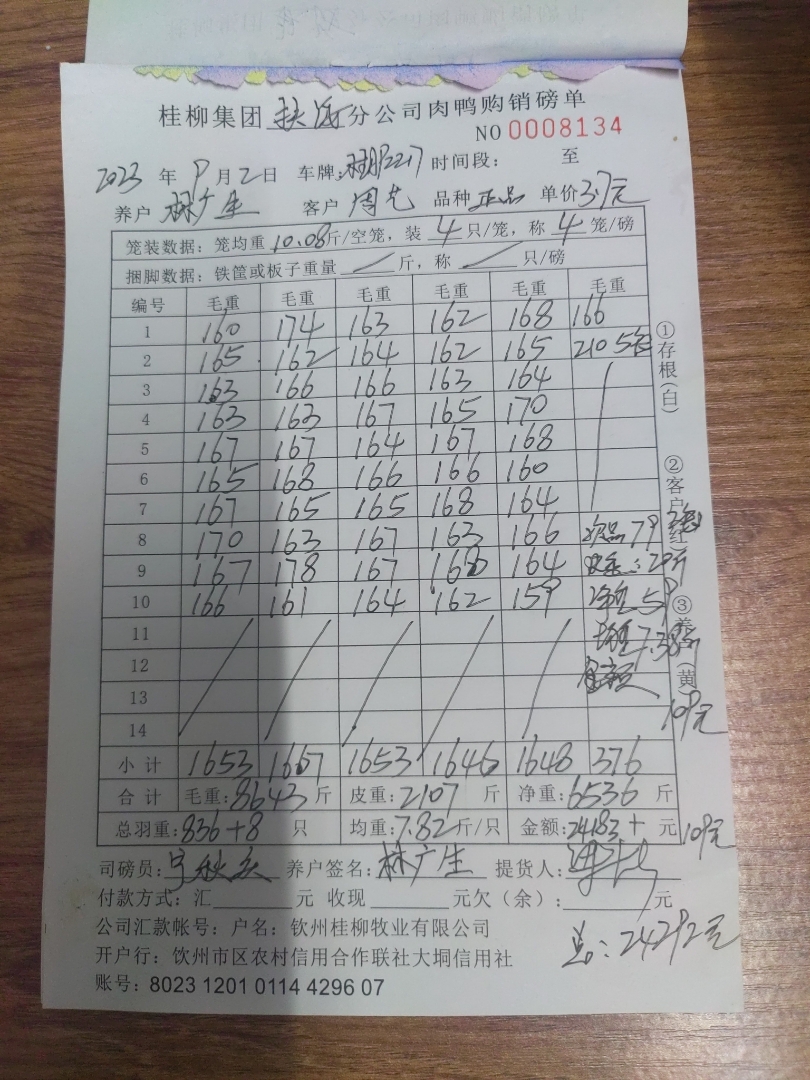 桂柳集团 扶沟 分公司肉鸭购销磅单
NO 0008134
2023 年 9 月 2 日 车牌: 2217 时间段: 至
养户 林广生 客户 周 品种 正品 单价 3.7元
笼装数据: 笼均重 10.08 斤/空笼, 装 4 只/笼, 称 4 笼/磅
捆脚数据: 铁筐或板子重量 / 斤, 称 / 只/磅
编号 毛重 毛重 毛重 毛重 毛重 毛重
1 160 174 163 162 168 166
2 165 162 164 162 165 210 5笼
3 163 166 166 163 164
4 163 163 167 165 170
5 167 167 164 167 168
6 165 168 166 166 160
7 167 165 165 168 164
8 170 163 167 163 166 次品 79
9 167 178 167 168 164 29斤
10 166 161 164 162 159 净重 59
11 均重 7.38斤
12 金额
13 109元
14
小计 1653 1667 1653 1646 1648 376
合计 毛重: 8643 斤 皮重: 2107 斤 净重: 6536 斤
总羽重: 836+8 只 均重: 7.82 斤/只 金额: 24183 + 元 109元
司磅员: 养户签名: 林广生 提货人:
付款方式: 汇 元 收现 元 欠(余): 元
公司汇款帐号: 户名: 钦州桂柳牧业有限公司
总: 24292元
开户行: 饮州市区农村信用合作联社大垌信用社
账号: 8023 1201 0114 4296 07
①存根(白)
②客户(红)
③养户(黄)